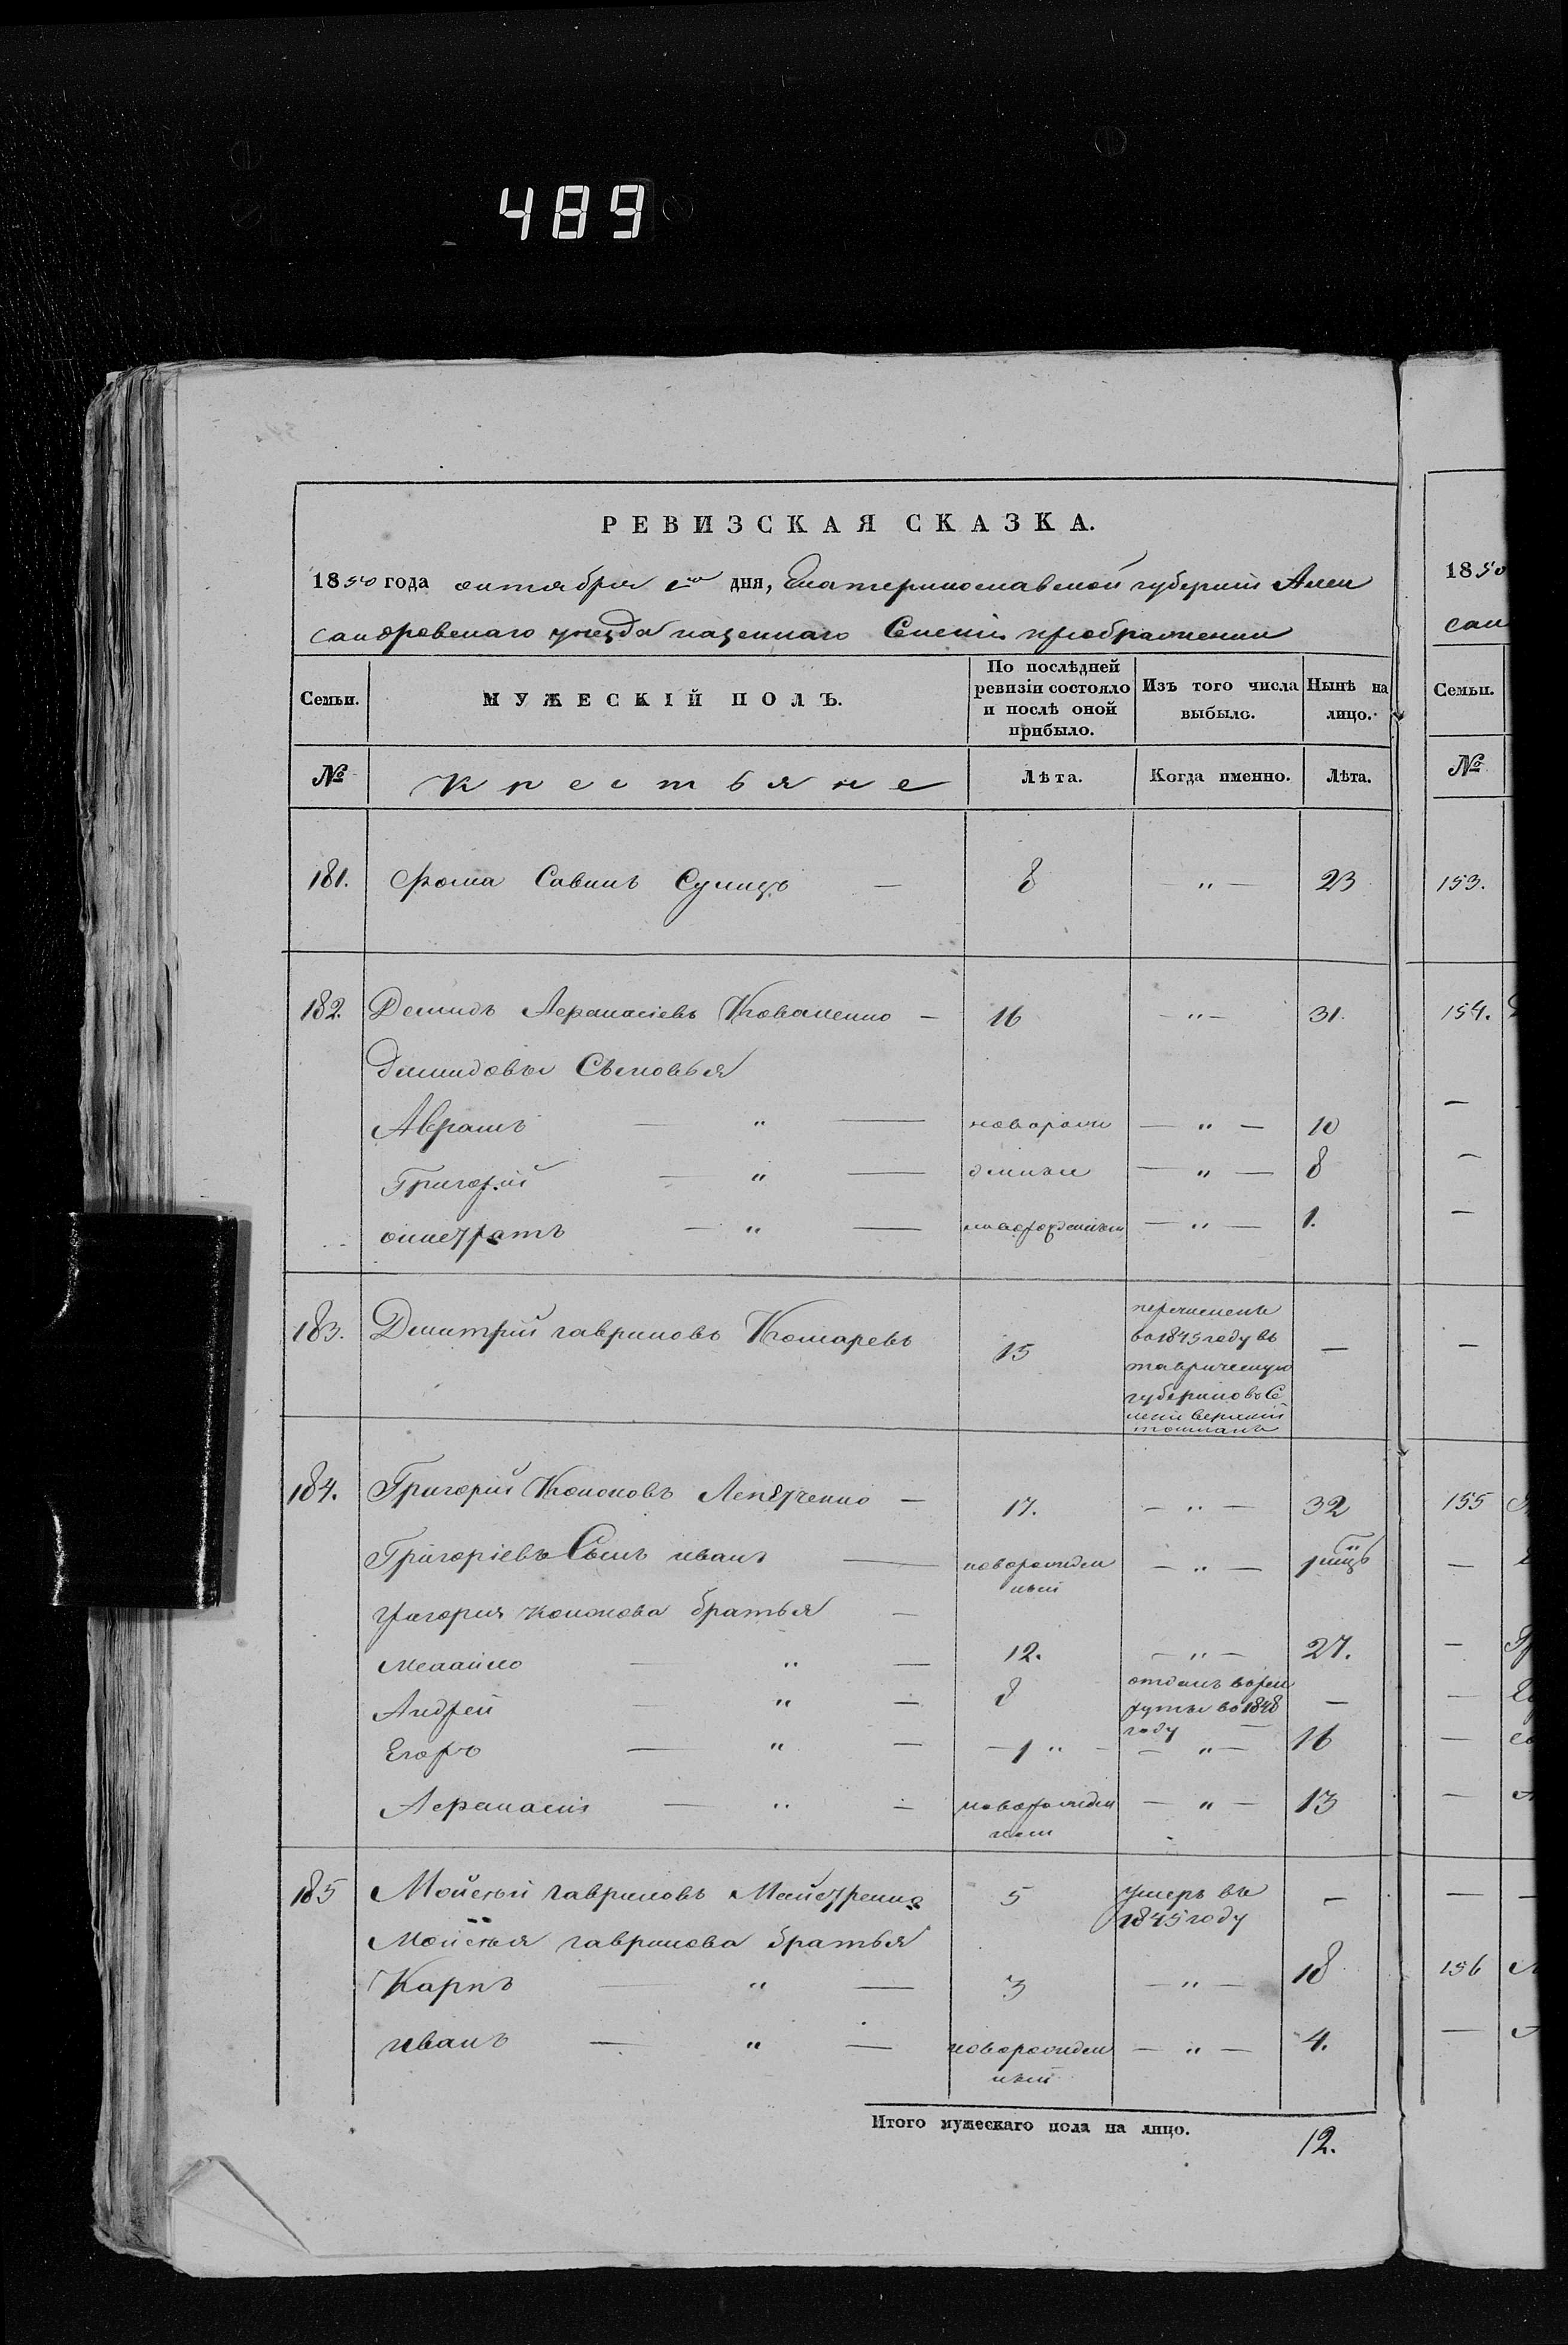 489
РЕВИЗСКАЯ СКАЗКА.
1850 года октября 1го дня, Екатеринославской губернiи Алек
сандровскаго уезда казеннаго Селенiя преображенки
Семьи. МУЖЕСКIЙ ПОЛЪ. По послѣдней ревизiи состояло и послѣ оной прибыло. Изъ того числа выбыло. Нынѣ на лицо.
№ Крестьяне Лѣта. Когда именно. Лѣта.
181. Фома Савинъ 8 — " — 23
182. Демидъ Афанасiевъ Коваленко — 16 — " — 31
Демидовы Сыновья
Аврамъ — " — новорож — " — 10
Григорiй — " — денные — " — 8
— " — новорожденный — " — 1.
183. Дмитрiй гавриловъ Комаревъ 15 перечисленъ —
во 1845 году въ
таврическую
губернiю въ Се
ленiе верхнiй
токмакъ
184. Григорiй Кононовъ — 17. — " — 32
Григорiевъ Сынъ иванъ — новорожден — " —
ный
григорiя кононова братья —
Михайло — " — 12. — " — 27.
Андрей — " — 8 отданъ в рек —
руты во 1848
году —
Егоръ — " — — 1 " — — " — 16
Афанасiй — " — новорожден — " — 13
ный
185 Мойсей гавриловъ 5 умеръ въ —
1845 году
Мойсея гаврилова братья
Карпъ — " — 3 — " — 18
иванъ — " — новорожден — " — 4.
ный
Итого мужескаго пола на лицо. 12.
1850
сан
Семьи.
№
153.
154.
155
156